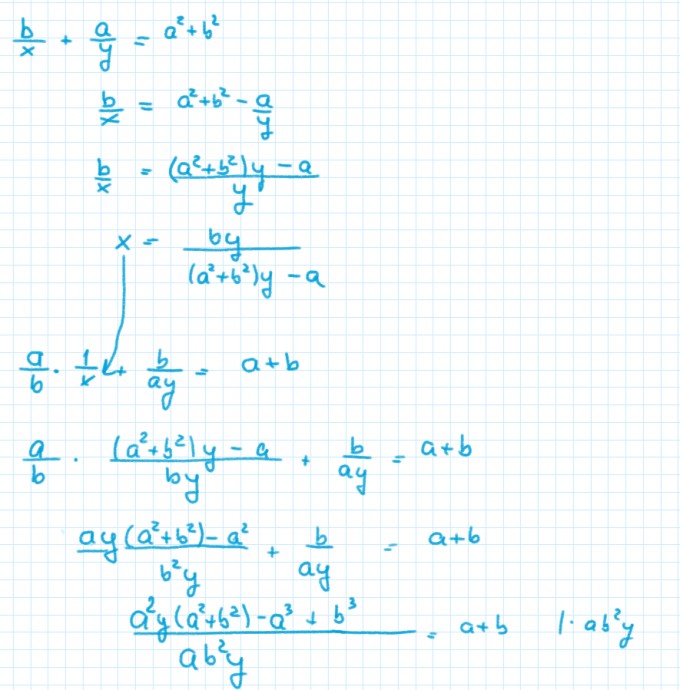 b/x + a/y = a²+b²
b/x = a²+b² - a/y
b/x = ((a²+b²)y - a)/y
x = by/((a²+b²)y - a)
a/b · 1/x + b/ay = a+b
a/b · ((a²+b²)y - a)/by + b/ay = a+b
(ay(a²+b²) - a²)/b²y + b/ay = a+b
(a²y(a²+b²) - a³ + b³)/ab²y = a+b |· ab²y